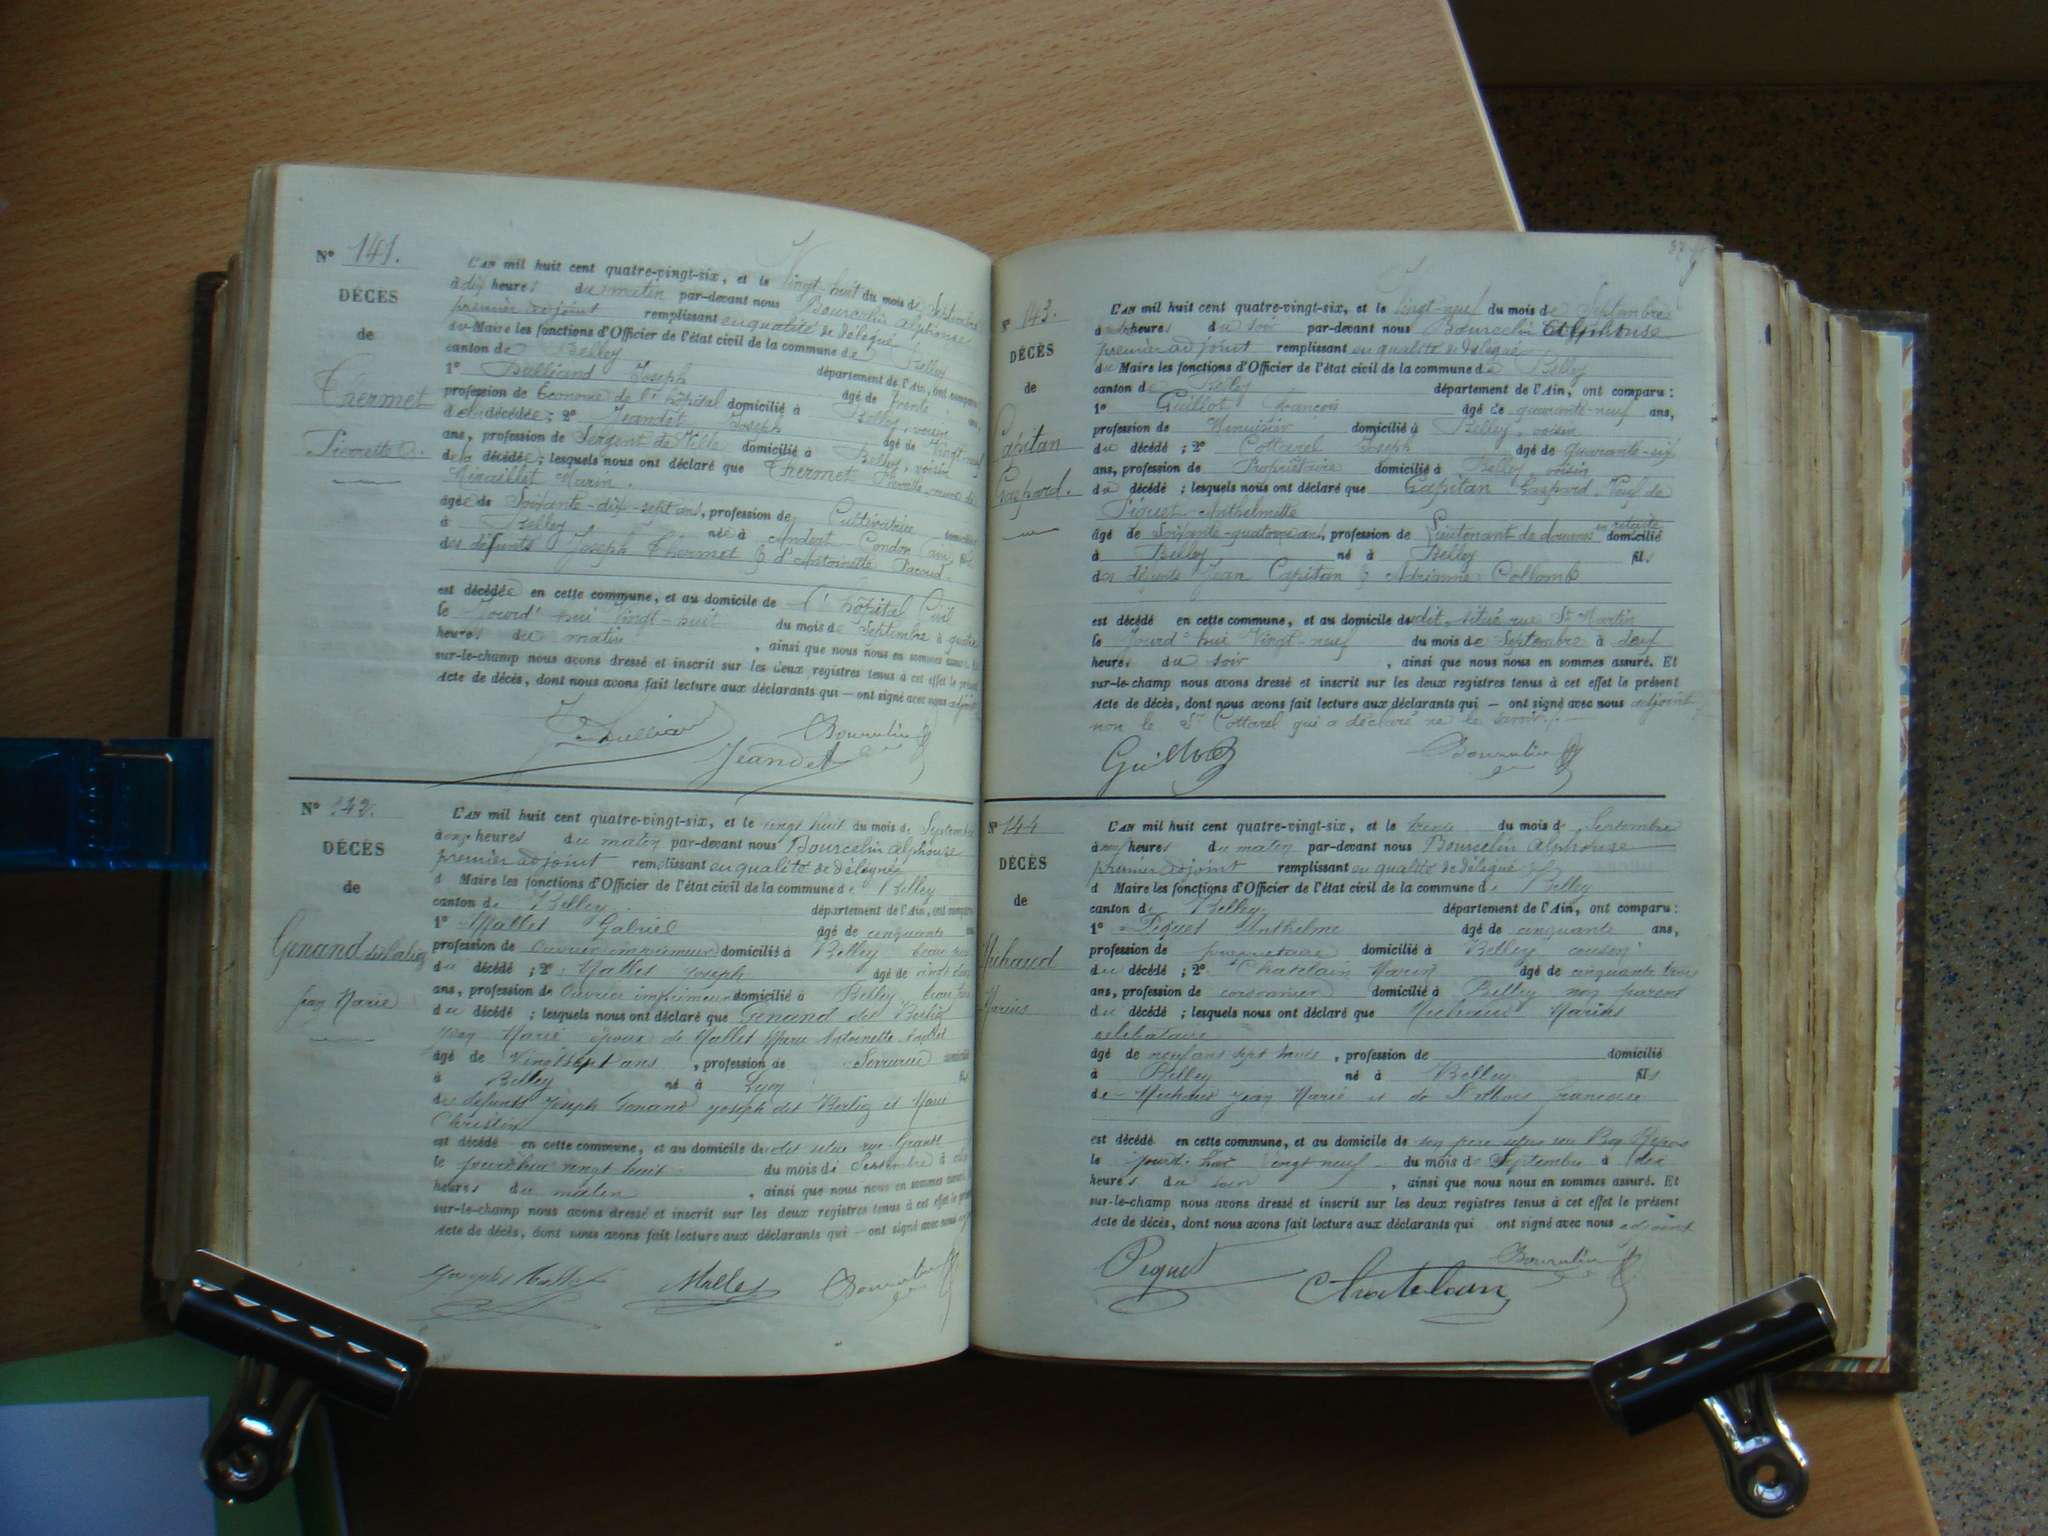 N° 141.
DÉCÈS
de
Thermet
Pierrette
L'AN mil huit cent quatre-vingt-six, et le Vingt-huit du mois de Septembre
à dix heures du matin par-devant nous Bourcelin Alphonse
premier adjoint remplissant en qualité de délégué
du Maire les fonctions d'Officier de l'état civil de la commune de Belley
canton de Belley département de l'Ain, ont comparu:
1° Joseph âgé de trente
profession de Économe de l'hôpital domicilié à Belley, voisin
de la décédée; 2° Jeandet Joseph âgé de Vingt-neuf
ans, profession de Sergent de Ville domicilié à Belley, voisin
de la décédée; lesquels nous ont déclaré que Thermet Pierrette veuve de
Miraillet Marin.
âgée de Soixante-dix-sept ans, profession de Cultivatrice domiciliée
à Belley née à Andert-Condon (Ain) fille
des défunts Joseph Thermet & d'Antoinette Pacoud.
est décédée en cette commune, et au domicile de l'hôpital Civil
le Jourd'hui Vingt-huit du mois de Septembre à quatre
heures du matin, ainsi que nous nous en sommes assuré. Et
sur-le-champ nous avons dressé et inscrit sur les deux registres tenus à cet effet le présent
Acte de décès, dont nous avons fait lecture aux déclarants qui — ont signé avec nous adjoint
Bourcelin
Jeandet
N° 142.
DÉCÈS
de
Genand
Jean Marie
L'AN mil huit cent quatre-vingt-six, et le vingt huit du mois de Septembre
à onze heures du matin par-devant nous Bourcelin Alphonse
premier adjoint remplissant en qualité de délégué
d Maire les fonctions d'Officier de l'état civil de la commune de Belley
canton de Belley département de l'Ain, ont comparu
1° Mallet Gabriel âgé de cinquante ans
profession de Ouvrier imprimeur domicilié à Belley beau père
du décédé; 2° Mallet Joseph âgé de vingt deux
ans, profession de Ouvrier imprimeur domicilié à Belley beau frère
du décédé; lesquels nous ont déclaré que Genand dit Berlioz
Jean Marie époux de Mallet Marie Antoinette
âgé de Vingt sept ans, profession de Serrurier domicilié
à Belley né à Lyon fils
de défunts Joseph Genand Joseph dit Berlioz et Marie
Christin
est décédé en cette commune, et au domicile du dit situé rue Grande
le jourd'hui vingt huit du mois de Septembre à
heures du matin, ainsi que nous nous en sommes assuré. Et
sur-le-champ nous avons dressé et inscrit sur les deux registres tenus à cet effet le présent
Acte de décès, dont nous avons fait lecture aux déclarants qui — ont signé avec nous
Joseph Mallet Mallet Bourcelin
N° 143.
DÉCÈS
de
Capitan
Gaspard.
L'AN mil huit cent quatre-vingt-six, et le Vingt-neuf du mois de Septembre
à heures du soir par-devant nous Bourcelin Alphonse
premier adjoint remplissant en qualité de délégué
du Maire les fonctions d'Officier de l'état civil de la commune de Belley
canton de Belley département de l'Ain, ont comparu:
1° Guillot François âgé de quarante-neuf ans,
profession de Menuisier domicilié à Belley, voisin
du décédé; 2° Cottarel Joseph âgé de Quarante-six
ans, profession de Propriétaire domicilié à Belley, voisin
du décédé; lesquels nous ont déclaré que Capitan Gaspard, Veuf de
Piquet Anthelmette
âgé de Soixante-quatorze ans, profession de Lieutenant de douanes en retraite domicilié
à Belley né à Belley fils
des défunts Jean Capitan & Adrianne Collomb
est décédé en cette commune, et au domicile du dit, situé rue St Martin
le Jourd'hui Vingt-neuf du mois de Septembre à deux
heures du soir, ainsi que nous nous en sommes assuré. Et
sur-le-champ nous avons dressé et inscrit sur les deux registres tenus à cet effet le présent
Acte de décès, dont nous avons fait lecture aux déclarants qui — ont signé avec nous adjoint
non le Sr Cottarel qui a déclaré ne le savoir.
Guillot Bourcelin
N° 144
DÉCÈS
de
Michaud
Marius
L'AN mil huit cent quatre-vingt-six, et le trente du mois de Septembre
à heures du matin par-devant nous Bourcelin Alphonse
premier adjoint remplissant en qualité de délégué
d Maire les fonctions d'Officier de l'état civil de la commune de Belley
canton de Belley département de l'Ain, ont comparu:
1° Piquet Anthelme âgé de cinquante ans,
profession de propriétaire domicilié à Belley cousin
du décédé; 2° Chatelain Marin âgé de cinquante trois
ans, profession de cordonnier domicilié à Belley non parent
du décédé; lesquels nous ont déclaré que Michaud Marius
célibataire
âgé de neuf ans sept mois, profession de domicilié
à Belley né à Belley fils
de Michaud Jean Marie et de Françoise
est décédé en cette commune, et au domicile de son père
le jourd'hui Vingt neuf du mois de Septembre à dix
heures du soir, ainsi que nous nous en sommes assuré. Et
sur-le-champ nous avons dressé et inscrit sur les deux registres tenus à cet effet le présent
Acte de décès, dont nous avons fait lecture aux déclarants qui ont signé avec nous adjoint
Piquet Chatelain Bourcelin